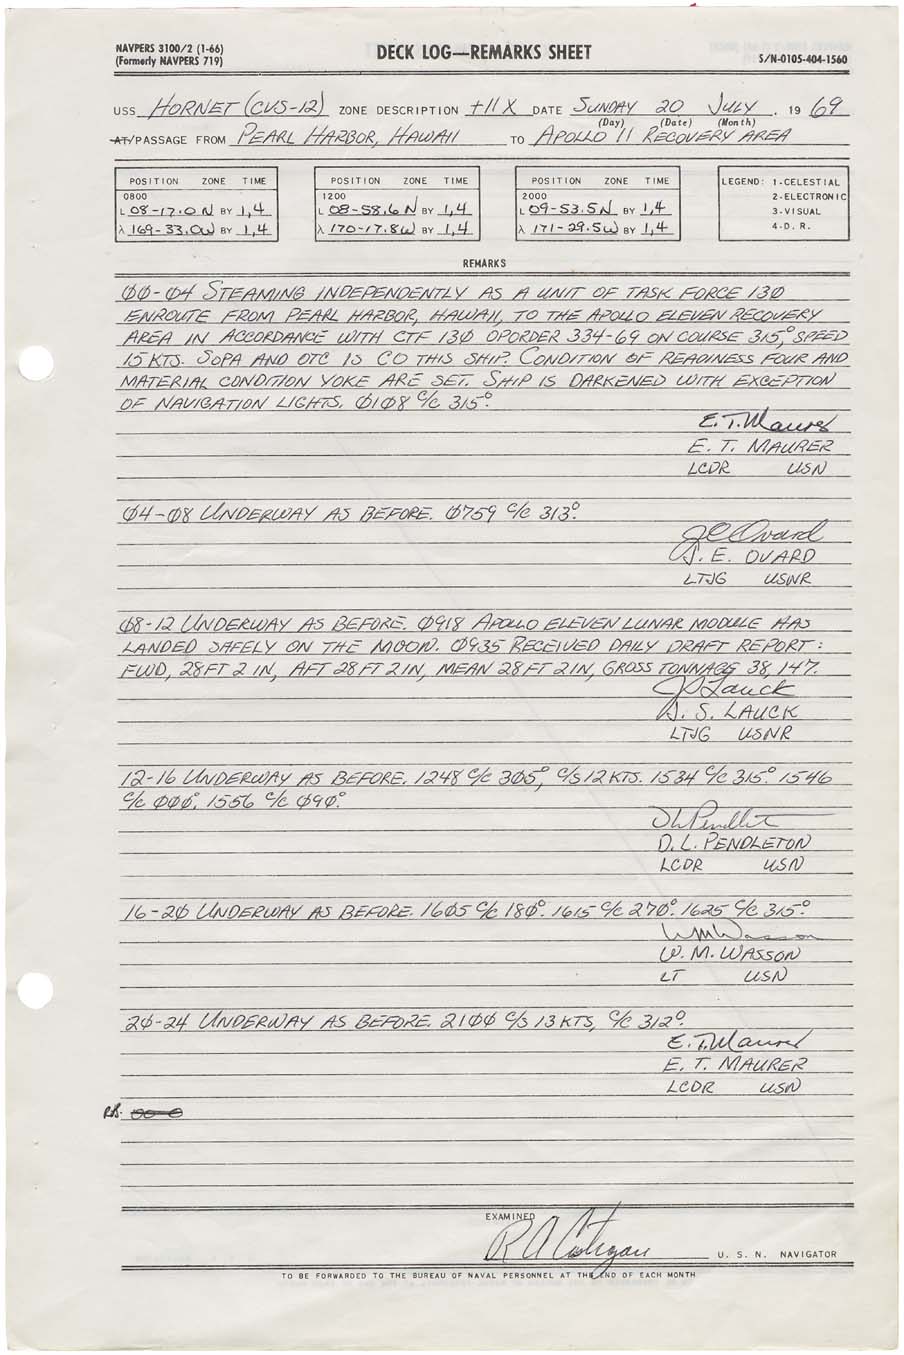 NAVPERS 3100/2 (1-66)
(Formerly NAVPERS 719)
DECK LOG—REMARKS SHEET
S/N-0105-404-1560
USS HORNET (CVS-12) ZONE DESCRIPTION +11 X DATE SUNDAY 20 JULY, 19 69
(Day) (Date) (Month)
AT/PASSAGE FROM PEARL HARBOR, HAWAII TO APOLLO 11 RECOVERY AREA
POSITION ZONE TIME
0800
L 08-17.0 N BY 1,4
λ 169-33.0W BY 1,4
POSITION ZONE TIME
1200
L 08-58.6 N BY 1,4
λ 170-17.8W BY 1,4
POSITION ZONE TIME
2000
L 09-53.5 N BY 1,4
λ 171-29.5W BY 1,4
LEGEND: 1-CELESTIAL
2-ELECTRONIC
3-VISUAL
4-D. R.
REMARKS
00-04 STEAMING INDEPENDENTLY AS A UNIT OF TASK FORCE 130
ENROUTE FROM PEARL HARBOR, HAWAII, TO THE APOLLO ELEVEN RECOVERY
AREA IN ACCORDANCE WITH CTF 130 OPORDER 334-69 ON COURSE 315°, SPEED
15 KTS. SOPA AND OTC IS CO THIS SHIP. CONDITION OF READINESS FOUR AND
MATERIAL CONDITION YOKE ARE SET. SHIP IS DARKENED WITH EXCEPTION
OF NAVIGATION LIGHTS. 0108 C/C 315°.
E. T. Maurer
E. T. MAURER
LCDR USN
04-08 UNDERWAY AS BEFORE. 0759 C/C 313°.
J E Ovard
J. E. OVARD
LTJG USNR
08-12 UNDERWAY AS BEFORE. 0918 APOLLO ELEVEN LUNAR MODULE HAS
LANDED SAFELY ON THE MOON. 0935 RECEIVED DAILY DRAFT REPORT:
FWD, 28 FT 2 IN, AFT 28 FT 2 IN, MEAN 28 FT 2 IN, GROSS TONNAGE 38,147.
J S Lauck
J. S. LAUCK
LTJG USNR
12-16 UNDERWAY AS BEFORE. 1248 C/C 305°, C/S 12 KTS. 1534 C/C 315°. 1546
C/C 000°. 1556 C/C 090°.
D L Pendleton
D. L. PENDLETON
LCDR USN
16-20 UNDERWAY AS BEFORE. 1605 C/C 180°. 1615 C/C 270°. 1625 C/C 315°.
W M Wasson
W. M. WASSON
LT USN
20-24 UNDERWAY AS BEFORE. 2100 C/S 13 KTS, C/C 312°.
E. T. Maurer
E. T. MAURER
LCDR USN
EXAMINED
U. S. N. NAVIGATOR
TO BE FORWARDED TO THE BUREAU OF NAVAL PERSONNEL AT THE END OF EACH MONTH